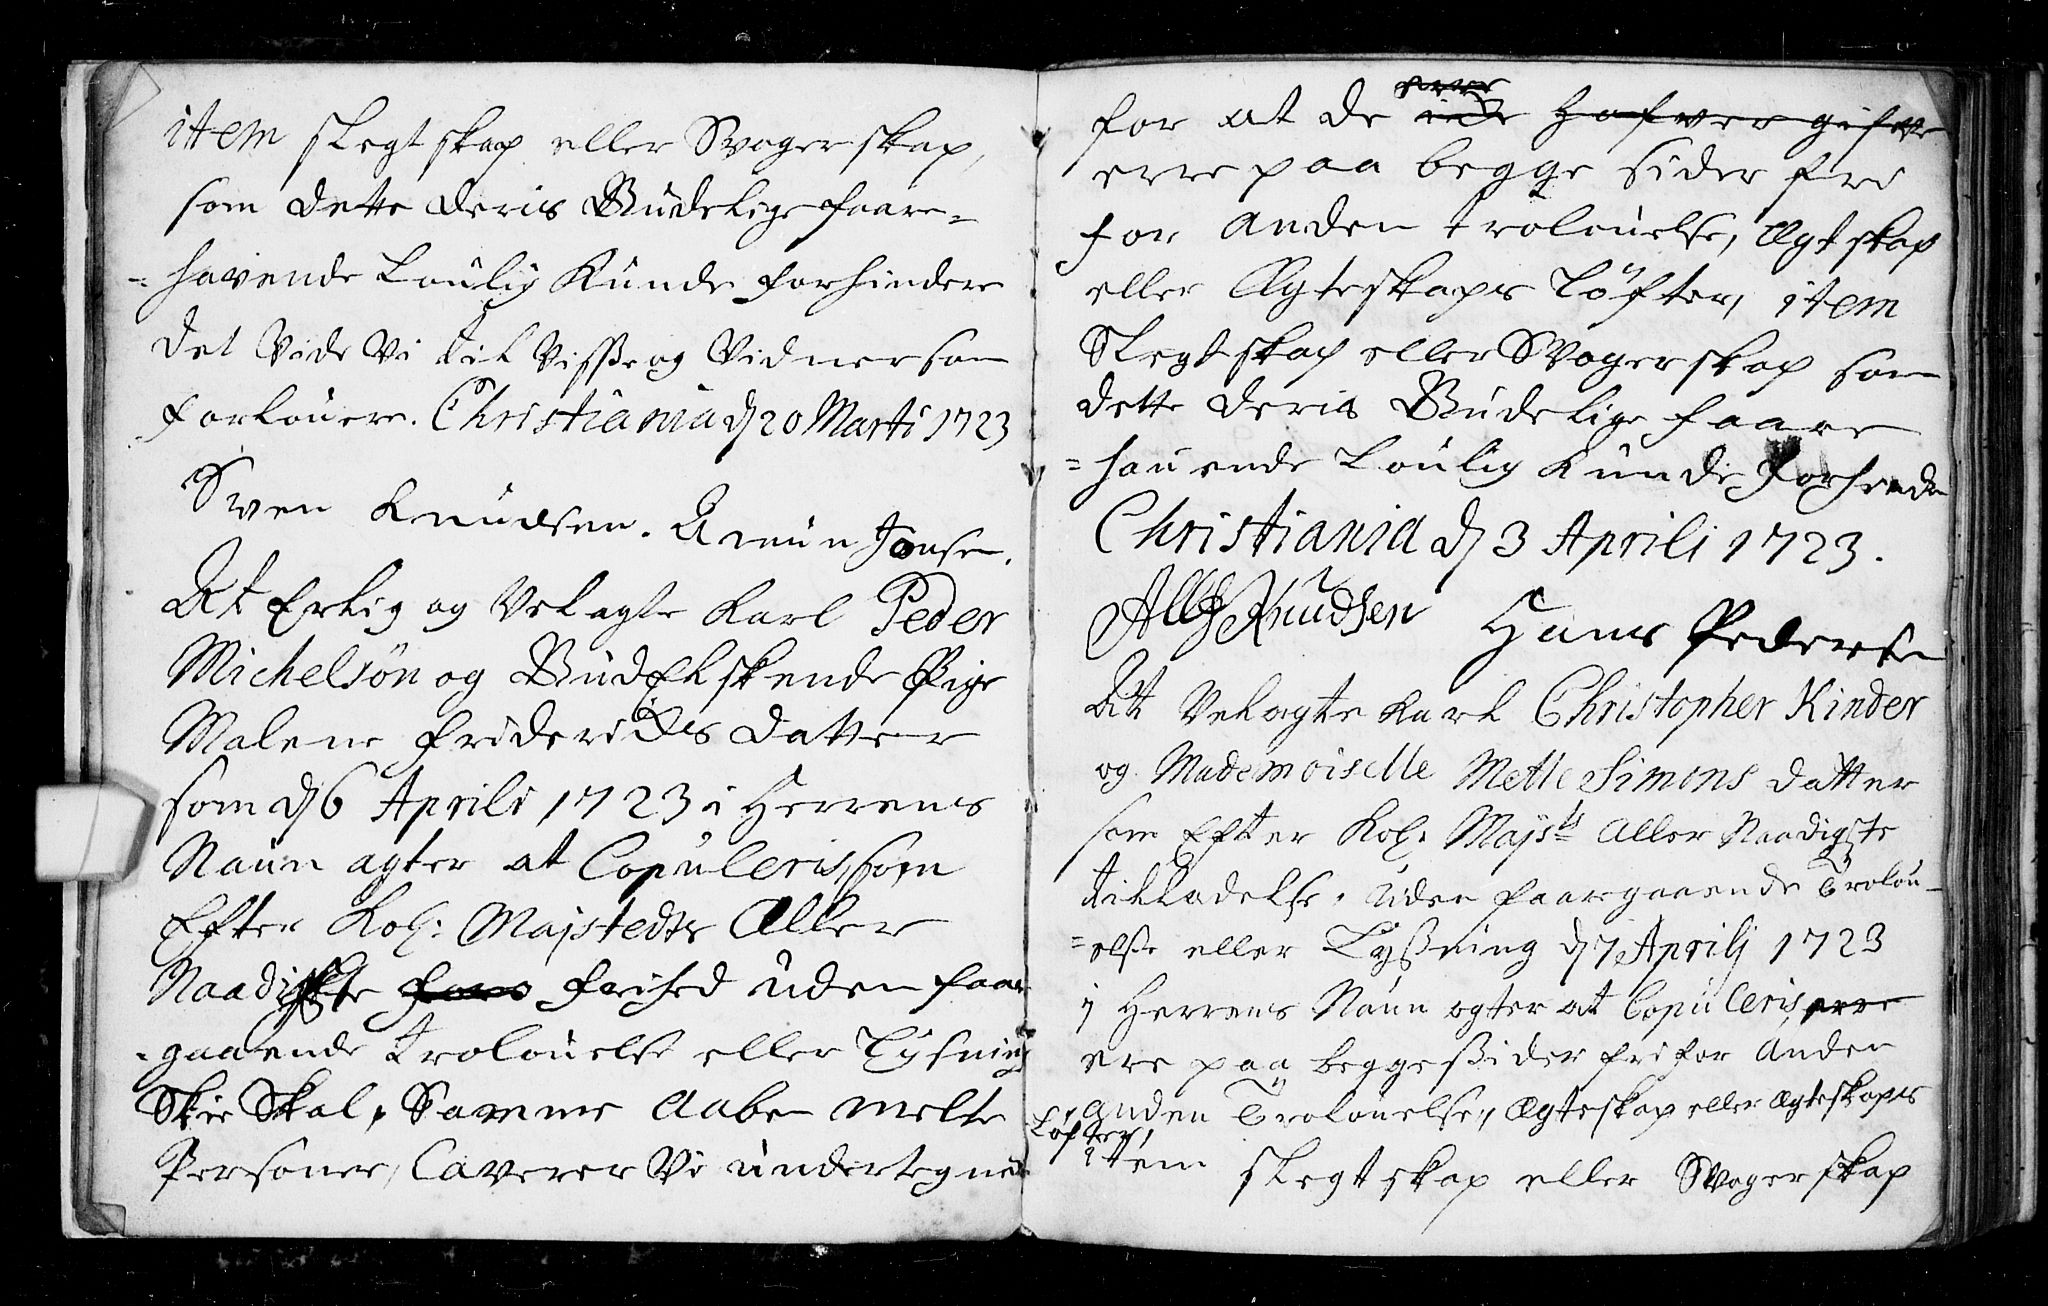 item slegtskap eller Svogerskap,
som dette deris Gudelige faare-
-havende Loulig Kunde forhindere
det Vide Vi til Visse og Vidner som
forlouere. Christiania d 20 Marti 1723
Sven Knudsen. Amun Jonsen.
At Erlig og Velagte Karl Peder
Michelsön og Gudelskende Pige
Malene Friderichs datter
som d 6 Aprili 1723 i Herrens
Naun agter at Copuleris, som
Efter Kol: Majstedts Aller
Naadigste frihed uden faar
-gaaende Trolouelse eller Lysning
Skie Skal, Samme Aabenmelte
Personer, Caverer Vi undertegnede
for at de erre icke hafver gifvet
erre paa begge sider fri
for anden trolouelse, Ægtskap
eller Ægteskaps Löfter, item
Slegtskap eller Svogerskap som
dette deris Gudelige faare
=hauende Loulig Kunde forhindre
Christiania d 3 Aprili 1723.
Knudsen Hans Pedersen
At Velagte Karl Christopher Kinder
og Mademoiselle Mette Simons datter
som Efter Kol: Mayts Aller Naadigste
tilladelse, uden faaregaaende Trolou-
=else eller Lyßning d 7 Aprilj 1723
j Herrens Naun agter at Copuleris, erre
ere paa begge sider fri for Anden
Anden Trolouelse, Ægteskap eller Ægteskaps
Löfter,
item slegtskap eller Svogerskap